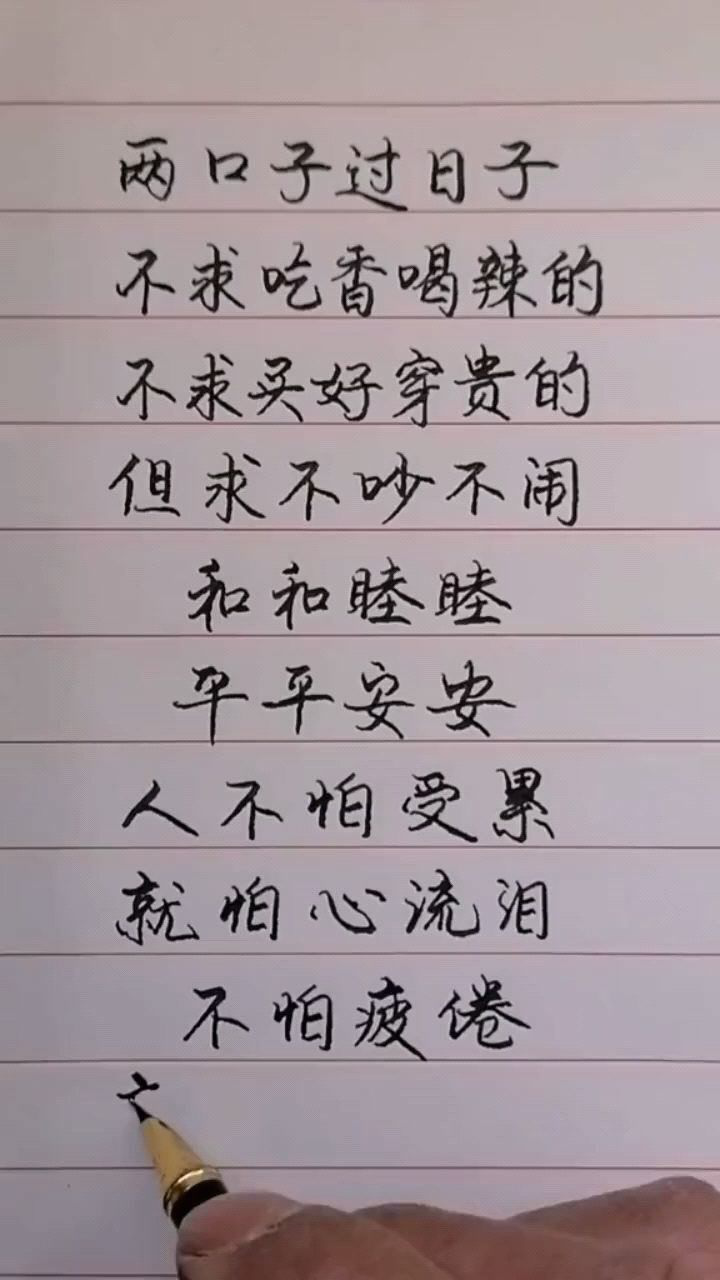 两口子过日子
不求吃香喝辣的
不求买好穿贵的
但求不吵不闹
和和睦睦
平平安安
人不怕受累
就怕心流泪
不怕疲倦